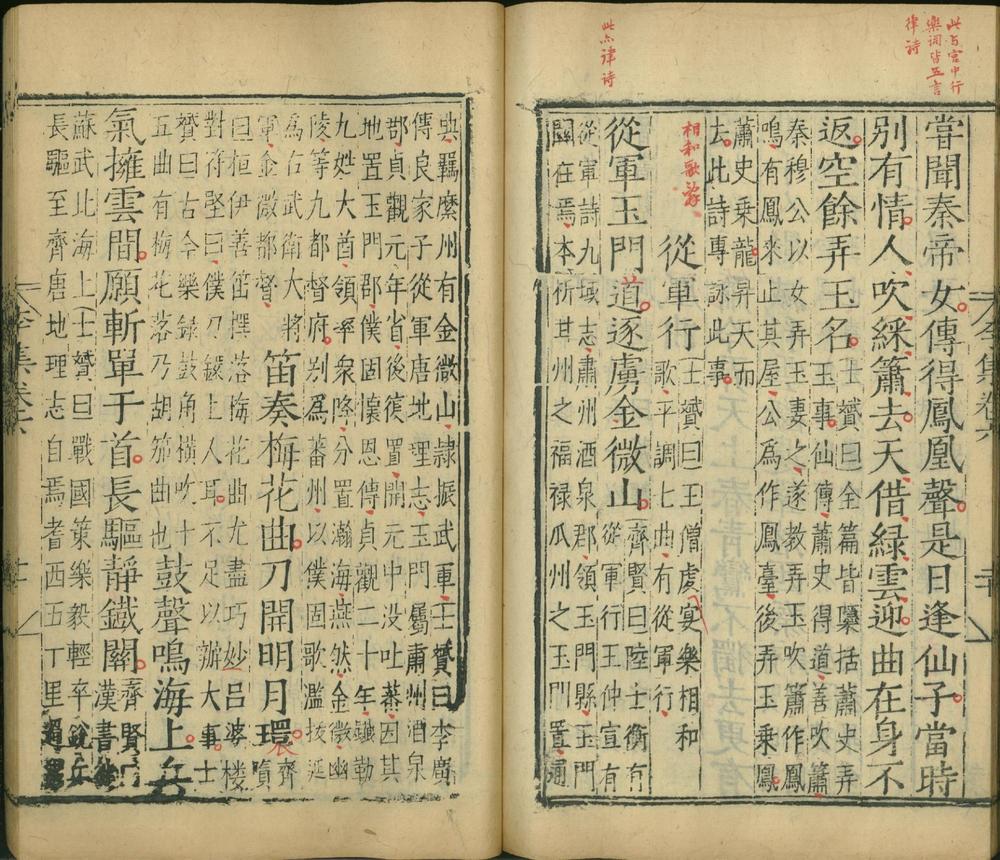 此与宫中行
樂詞皆五言
律詩
此亦律詩
嘗聞秦帝女傳得鳳凰聲是日逢仙子當時
別有情人吹綵簫去天借緑雲迎曲在身不
返空餘弄玉名
士贇曰全篇皆檃括蕭史弄
玉事仙傳蕭史得道善吹簫
秦穆公以女弄玉妻之遂教弄玉吹簫作鳳
鳴有鳳来止其屋公爲作鳳臺後弄玉乗鳳
蕭史乗龍昇天而
去此詩專詠此事
相和歌辞
從軍行
士贇曰王僧虔宴樂相和
歌平調七曲有從軍行
從軍玉門道逐虜金微山
齊賢曰陸士衡有
從軍行王仲宣有
從軍詩九域志肅州酒泉郡領玉門縣玉門
關在焉本析甘州之福禄瓜州之玉門置通
典羈縻州有金微山隷振武軍士贇曰李廣
傳良家子從軍唐地理志玉門屬肅州酒泉
郡貞觀元年省後復置開元中没吐蕃因其
地置玉門郡僕固懐恩傳貞觀二十年鐵勒
九姓大酋領率衆降分置瀚海燕然金微幽
陵等九都督府别爲蕃州以僕固歌濫拔延
爲右武衛大將
軍金微都督
笛奏梅花曲刀開明月環
齊
賢
曰桓伊善笛撰落梅花曲尤盡巧妙吕婆楼
對苻堅曰僕刀鐶上人耳不足以辦大事士
贇曰古今樂録鼓角横吹十
五曲有梅花落乃胡笳曲也
鼓聲鳴海上兵
氣擁雲間願斬單于首長驅靜鐵關
齊賢曰
漢書
蘇武北海上士贇曰戰國策樂毅輕卒鋭兵
長驅至齊唐地理志自焉耆西五丁里過
李集卷六
二十